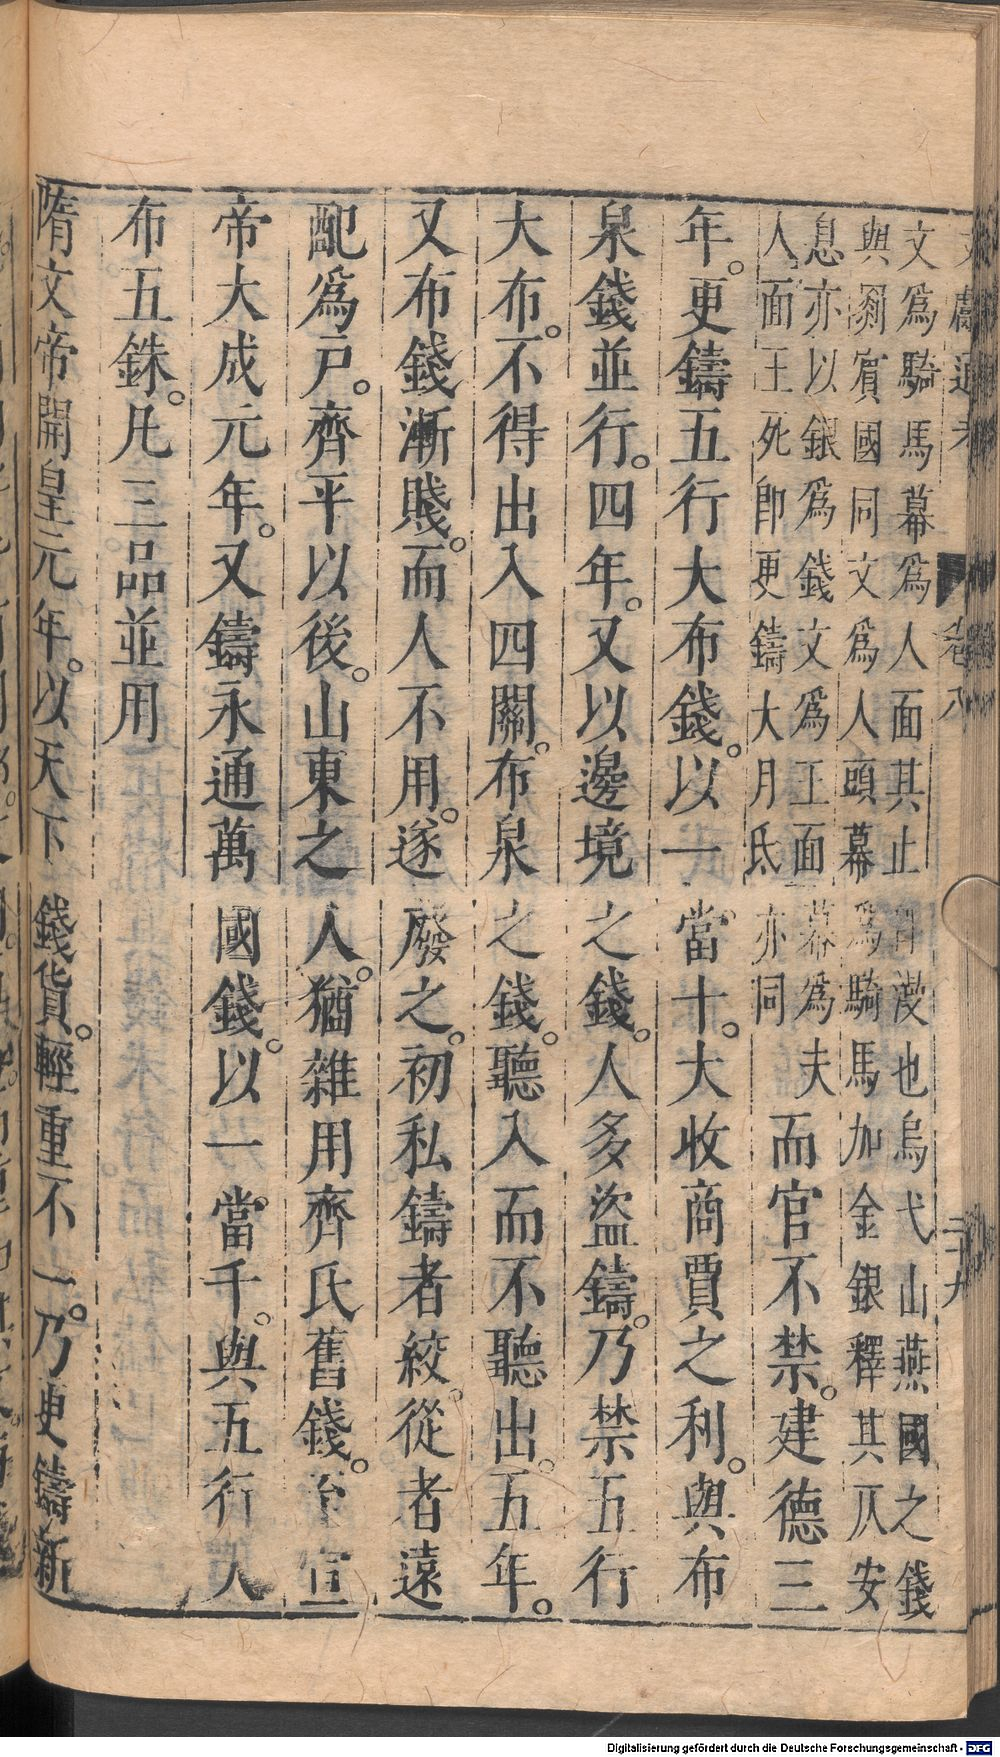 文獻通考　卷八　二十九
文爲騎馬幕爲人面其止即漫也烏弋山燕國之錢
與罽賓國同文爲人頭幕爲騎馬加金銀釋其仄安
息亦以銀爲錢文爲王面幕爲夫
人面王死即更鑄大月氏亦同
而官不禁。建德三
年。更鑄五行大布錢。以一當十。大收商賈之利。與布
泉錢並行。四年。又以邊境之錢。人多盜鑄。乃禁五行
大布。不得出入四關。布泉之錢。聽入而不聽出。五年。
又布錢漸賤。而人不用。遂廢之。初私鑄者絞。從者遠
配爲戶。齊平以後。山東之人。猶雜用齊氏舊錢。至宣
帝大成元年。又鑄永通萬國錢。以一當千。與五行大
布五銖。凡三品並用
隋文帝開皇元年。以天下錢貨。輕重不一。乃更鑄新
Digitalisierung gefördert durch die Deutsche Forschungsgemeinschaft - DFG